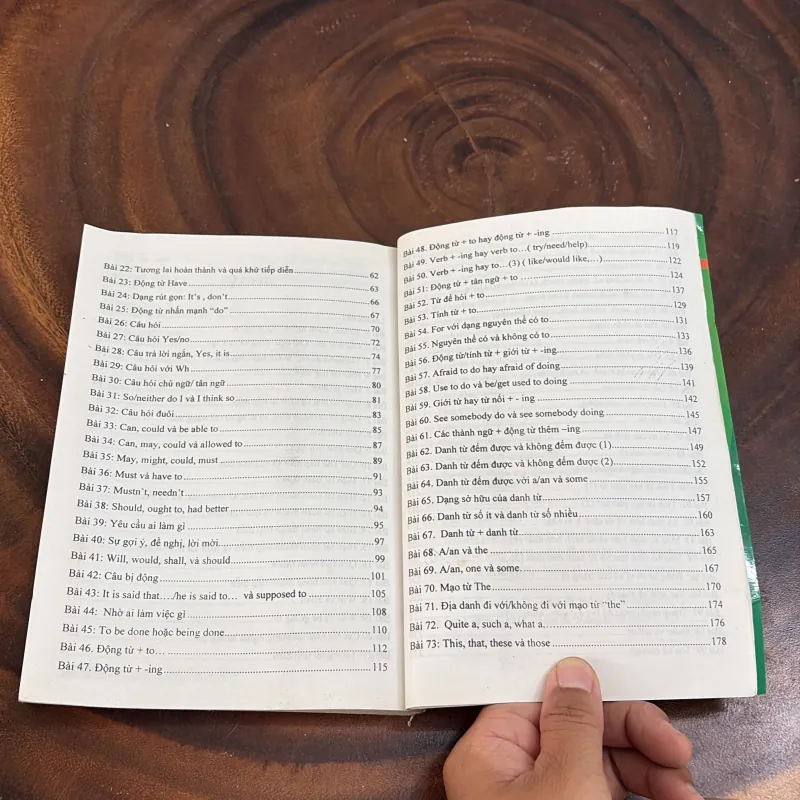 Bài 22: Tương lai hoàn thành và quá khứ tiếp diễn...62
Bài 23: Động từ Have...63
Bài 24: Dạng rút gọn: It's , don't...66
Bài 25: Động từ nhấn mạnh "do"...67
Bài 26: Câu hỏi...70
Bài 27: Câu hỏi Yes/no...72
Bài 28: Câu trả lời ngắn, Yes, it is...74
Bài 29: Câu hỏi với Wh...77
Bài 30: Câu hỏi chủ ngữ/ tân ngữ...80
Bài 31: So/neither do I và I think so...81
Bài 32: Câu hỏi đuôi...83
Bài 33: Can, could và be able to...85
Bài 34: Can, may, could và allowed to...87
Bài 35: May, might, could, must...89
Bài 36: Must và have to...91
Bài 37: Mustn't, needn't...93
Bài 38: Should, ought to, had better...94
Bài 39: Yêu cầu ai làm gì...95
Bài 40: Sự gợi ý, đề nghị, lời mời...97
Bài 41: Will, would, shall, và should...99
Bài 42: Câu bị động...101
Bài 43: It is said that..../he is said to... và supposed to...105
Bài 44: Nhờ ai làm việc gì...108
Bài 45: To be done hoặc being done...110
Bài 46. Động từ + to...112
Bài 47. Động từ + -ing...115
Bài 48. Động từ + to hay động từ + -ing...117
Bài 49. Verb + -ing hay verb to…( try/need/help)...119
Bài 50. Verb + -ing hay to…(3) ( like/would like,…)...122
Bài 51: Động từ + tân ngữ + to...124
Bài 52. Từ để hỏi + to...137
Bài 53. Tính từ + to...129
Bài 54. For với dạng nguyên thể có to...131
Bài 55. Nguyên thể có và không có to...133
Bài 56. Động từ/tính từ + giới từ + -ing...136
Bài 57. Afraid to do hay afraid of doing...139
Bài 58. Use to do và be/get used to doing...141
Bài 59. Giới từ hay từ nối + - ing...142
Bài 60. See somebody do và see somebody doing...145
Bài 61. Các thành ngữ + động từ thêm –ing...147
Bài 62. Danh từ đếm được và không đếm được (1)...149
Bài 63. Danh từ đếm được và không đếm được (2)...152
Bài 64. Danh từ đếm được với a/an và some...155
Bài 65. Dạng sở hữu của danh từ...157
Bài 66. Danh từ số ít và danh từ số nhiều...160
Bài 67. Danh từ + danh từ...163
Bài 68. A/an và the...165
Bài 69. A/an, one và some...167
Bài 70. Mạo từ The...170
Bài 71. Địa danh đi với/không đi với mạo từ "the"...174
Bài 72. Quite a, such a, what a...176
Bài 73: This, that, these và those...178